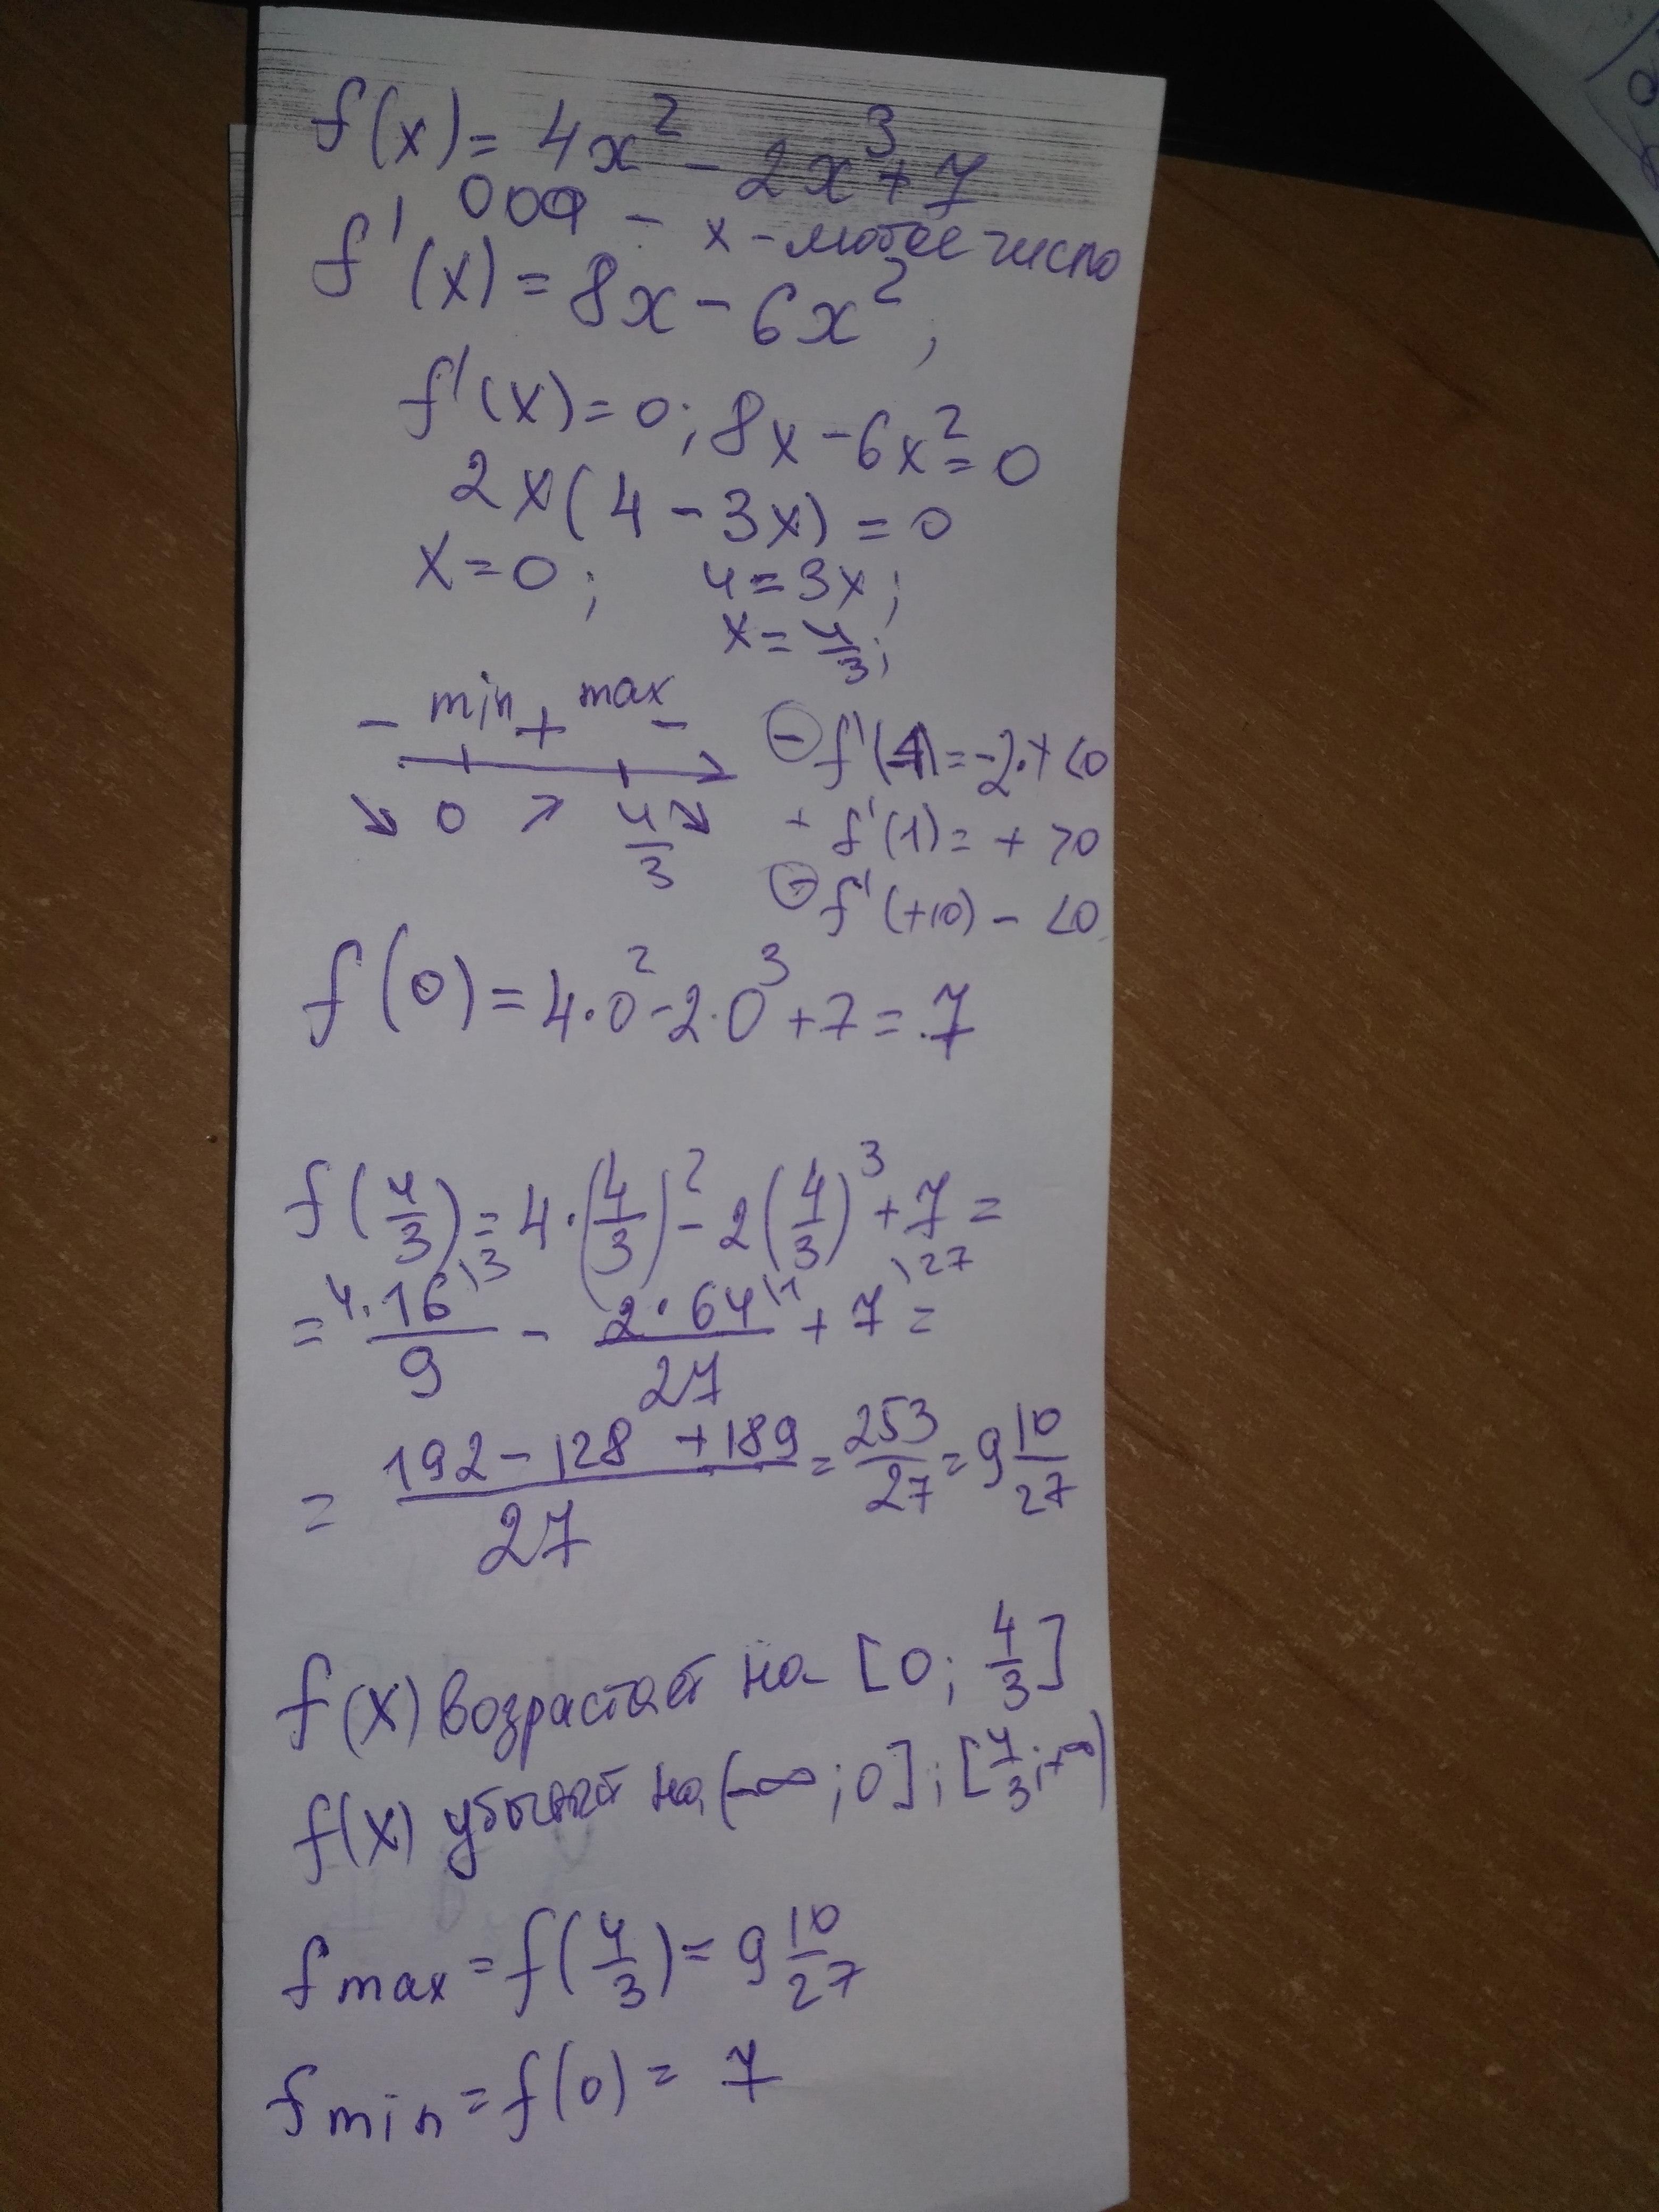 f(x) = 4x² - 2x³ + 7
ООФ - x - любое число
f'(x) = 8x - 6x²,
f'(x) = 0; 8x - 6x² = 0
2x(4 - 3x) = 0
x = 0; 4 = 3x;
x = 4/3;
- min + max -
0 4/3
⊖ f'(-1) = -2·+ <0
+ f'(1) = + >0
⊖ f'(+10) - <0
f(0) = 4·0² - 2·0³ + 7 = 7
f(4/3) = 4·(4/3)² - 2(4/3)³ + 7 =
= 4·16\3/9 - 2·64\1/27 + 7\27 =
= (192 - 128 + 189)/27 = 253/27 = 9 10/27
f(x) возрастает на [0; 4/3]
f(x) убывает на (-∞; 0]; [4/3; +∞)
f max = f(4/3) = 9 10/27
f min = f(0) = 7